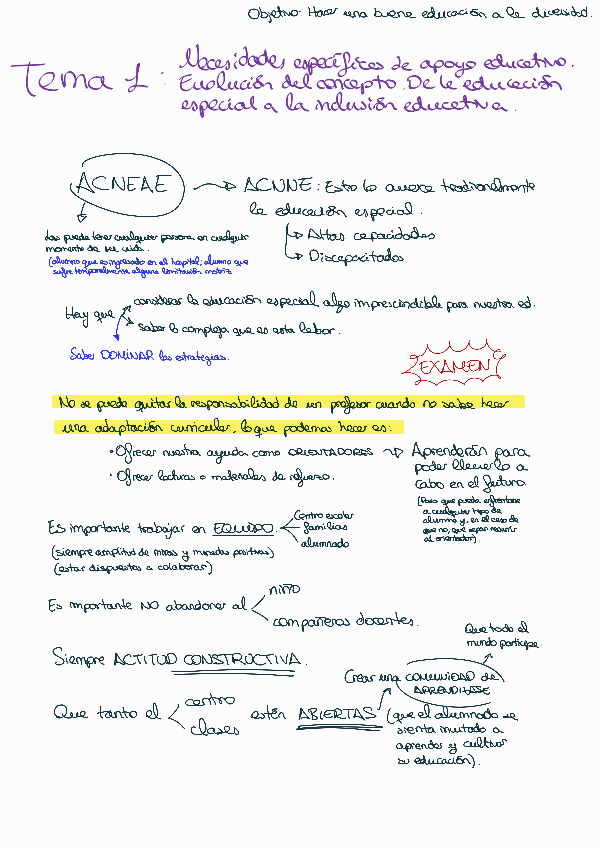 Objetivo: Hacer una buena educación a la diversidad.
Tema 1: Necesidades específicas de apoyo educativo.
Evolución del concepto. De la educación
especial a la inclusión educativa.
ACNEAE → ACNNE: Esto lo abarca tradicionalmente
la educación especial.
↳ Altas capacidades
↳ Discapacitados
Las puede tener cualquier persona en cualquier
momento de su vida.
(alumno que es ingresado en el hospital; alumno que
sufre temporalmente alguna limitación motriz
Hay que considerar la educación especial algo imprescindible para nuestra ed.
saber lo complejo que es esta labor.
Saber DOMINAR las estrategias.
EXAMEN
No se puede quitar la responsabilidad de un profesor cuando no sabe hacer
una adaptación curricular, lo que podemos hacer es:
• Ofrecer nuestra ayuda como ORIENTADORES → Aprenderán para
poder llevarlo a
cabo en el futuro
• Ofrecer lecturas o materiales de refuerzo.
(Para que pueda enfrentarse
a cualquier tipo de
alumno y, en el caso de
que no, que sepan recurrir
al orientador).
Es importante trabajar en EQUIPO.
centro escolar
familias
alumnado
(siempre amplitud de miras y miradas positivas)
(estar dispuestos a colaborar)
Es importante NO abandonar al
niño
compañeros docentes.
Que todo el
mundo participe.
Siempre ACTITUD CONSTRUCTIVA.
Crear una COMUNIDAD de
APRENDIZAJE
Que tanto el
centro
clases
estén ABIERTAS (que el alumnado se
sienta invitado a
aprender y cultivar
su educación).